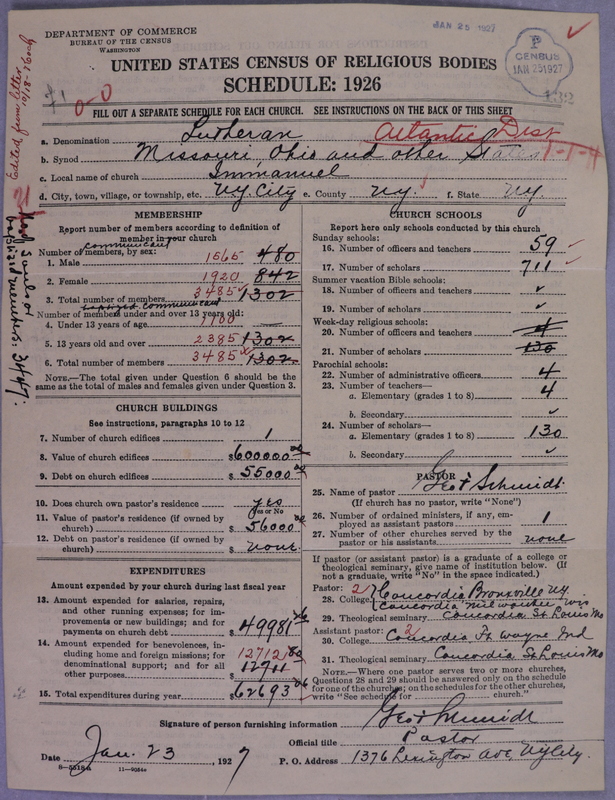 DEPARTMENT OF COMMERCE
BUREAU OF THE CENSUS
WASHINGTON
JAN 25 1927
P
CENSUS
JAN 25 1927
132
UNITED STATES CENSUS OF RELIGIOUS BODIES
SCHEDULE: 1926
0-0
FILL OUT A SEPARATE SCHEDULE FOR EACH CHURCH. SEE INSTRUCTIONS ON THE BACK OF THIS SHEET
a. Denomination Lutheran Atlantic Dist
b. Synod Missouri, Ohio and other States 1-1-4
c. Local name of church Immanuel
d. City, town, village, or township, etc. N.Y. City e. County N.Y. f. State N.Y.
MEMBERSHIP
Report number of members according to definition of member in your church
communicant
Number of members, by sex:
1. Male 1565 480
2. Female 1920 842
3. Total number of members 3485 1302
baptized communicant
Number of members under and over 13 years old:
4. Under 13 years of age 1100
5. 13 years old and over 2385 1302
6. Total number of members 3485 1302
NOTE.—The total given under Question 6 should be the same as the total of males and females given under Question 3.
CHURCH BUILDINGS
See instructions, paragraphs 10 to 12
7. Number of church edifices 1
8. Value of church edifices $600000 00
9. Debt on church edifices $55000 00
10. Does church own pastor's residence yes
Yes or No
11. Value of pastor's residence (if owned by church) $56000
12. Debt on pastor's residence (if owned by church) $ none
EXPENDITURES
Amount expended by your church during last fiscal year
13. Amount expended for salaries, repairs, and other running expenses; for improvements or new building; and for payments on church debt $49981
14. Amount expended for benevolences, including home and foreign missions; for denominational support; and for all other purposes 12712 12711
15. Total expenditures during year $62693
CHURCH SCHOOLS
Report here only schools conducted by this church
Sunday schools:
16. Number of officers and teachers 59
17. Number of scholars 711
Summer vacation Bible schools:
18. Number of officers and teachers
19. Number of scholars
Week-day religious schools:
20. Number of officers and teachers 4
21. Number of scholars 130
Parochial schools:
22. Number of administrative officers 4
23. Number of teachers—
a. Elementary (grades 1 to 8) 4
b. Secondary
24. Number of scholars—
a. Elementary (grades 1 to 8) 130
b. Secondary
PASTOR
25. Name of pastor Geo Schmidt
(If church has no pastor, write "None")
26. Number of ordained ministers, if any, employed as assistant pastors 1
27. Number of other churches served by the pastor or his assistants none
If pastor (or assistant pastor) is a graduate of a college or theological seminary, give name of institution below. (If not a graduate, write "No" in the space indicated.)
Pastor: 2
28. College Concordia Bronxville NY
Concordia Milwaukee Wis
29. Theological seminary Concordia St Louis Mo
Assistant pastor: 2
30. College Concordia Ft Wayne Ind
31. Theological seminary Concordia St Louis Mo
NOTE.—Where one pastor serves two or more churches, Questions 28 and 29 should be answered only on the schedule for one of the churches; on the schedules for the other churches, write "See schedule for church."
Signature of person furnishing information Geo Schmidt
Official title Pastor
Date Jan. 23, 1927
P. O. Address 1376 Lexington Ave NY City.
11-9084